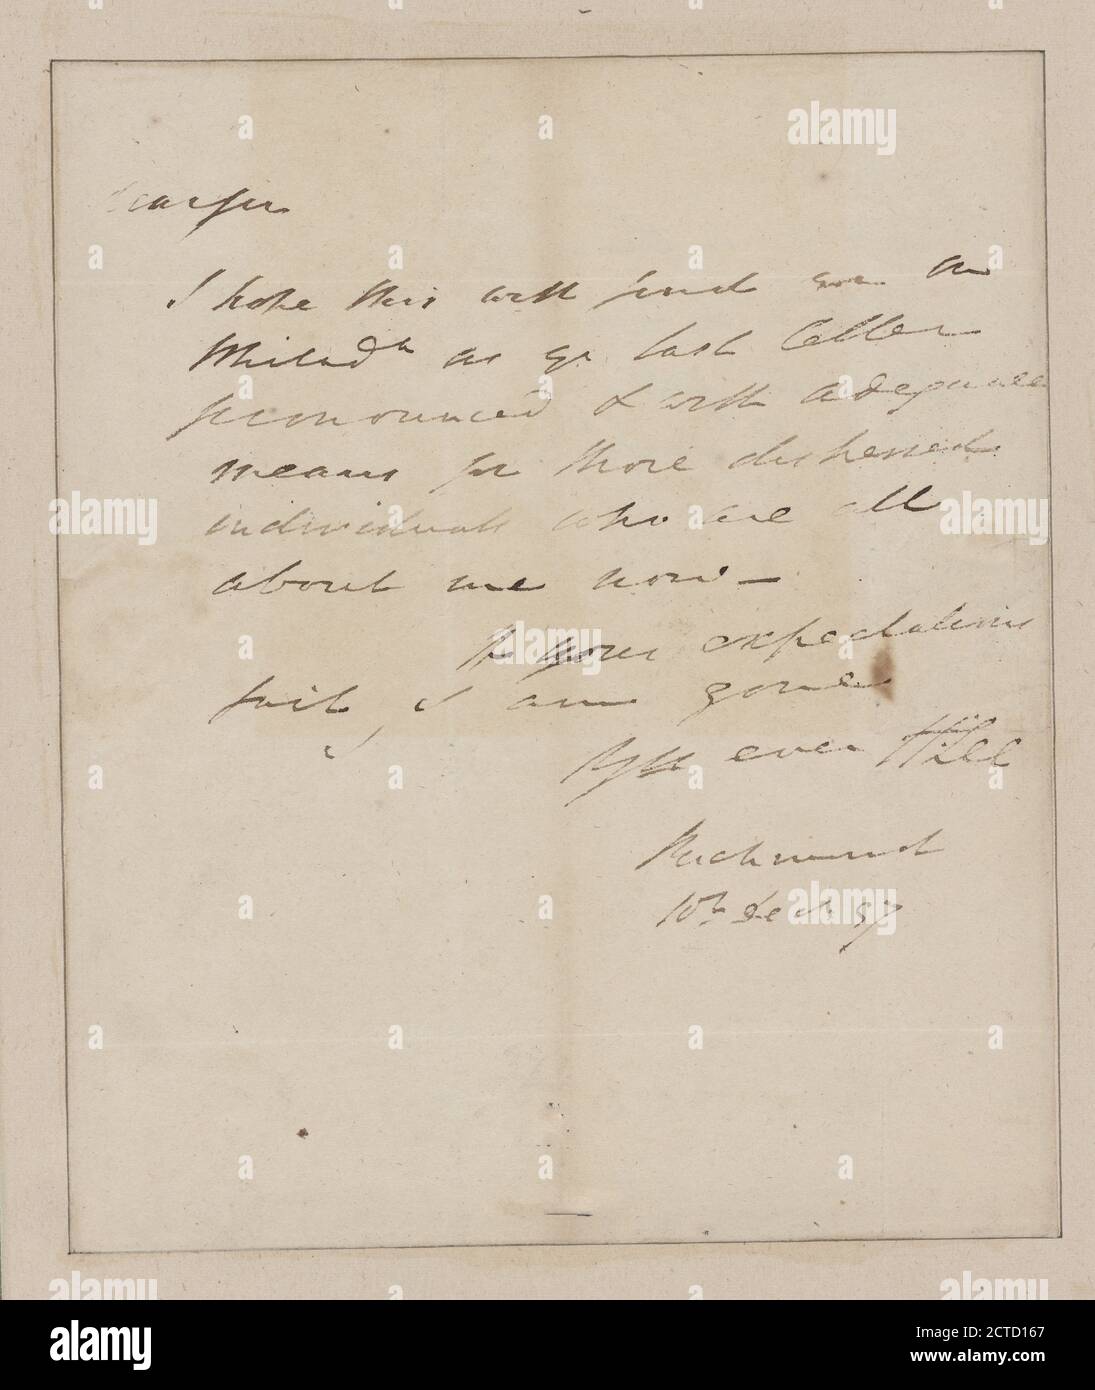 Dear Sir
I hope this will find you in
Philadᵃ as yr last letter
pronounced & with adequate
means for those distressed
individuals who are all
about me now —
If your expectations
fail, I am gone
Yrs ever HLee
Richmond
10th Dec. 97
alamy
Image ID: 2CTD167
www.alamy.com